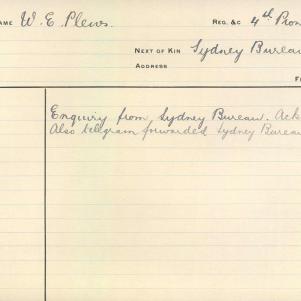 NAME W. E. Plews. REG. &C 4th Pion
NEXT OF KIN Sydney Bureau
ADDRESS
Enquiry from Sydney Bureau. Ack
Also telegram forwarded Sydney Bureau